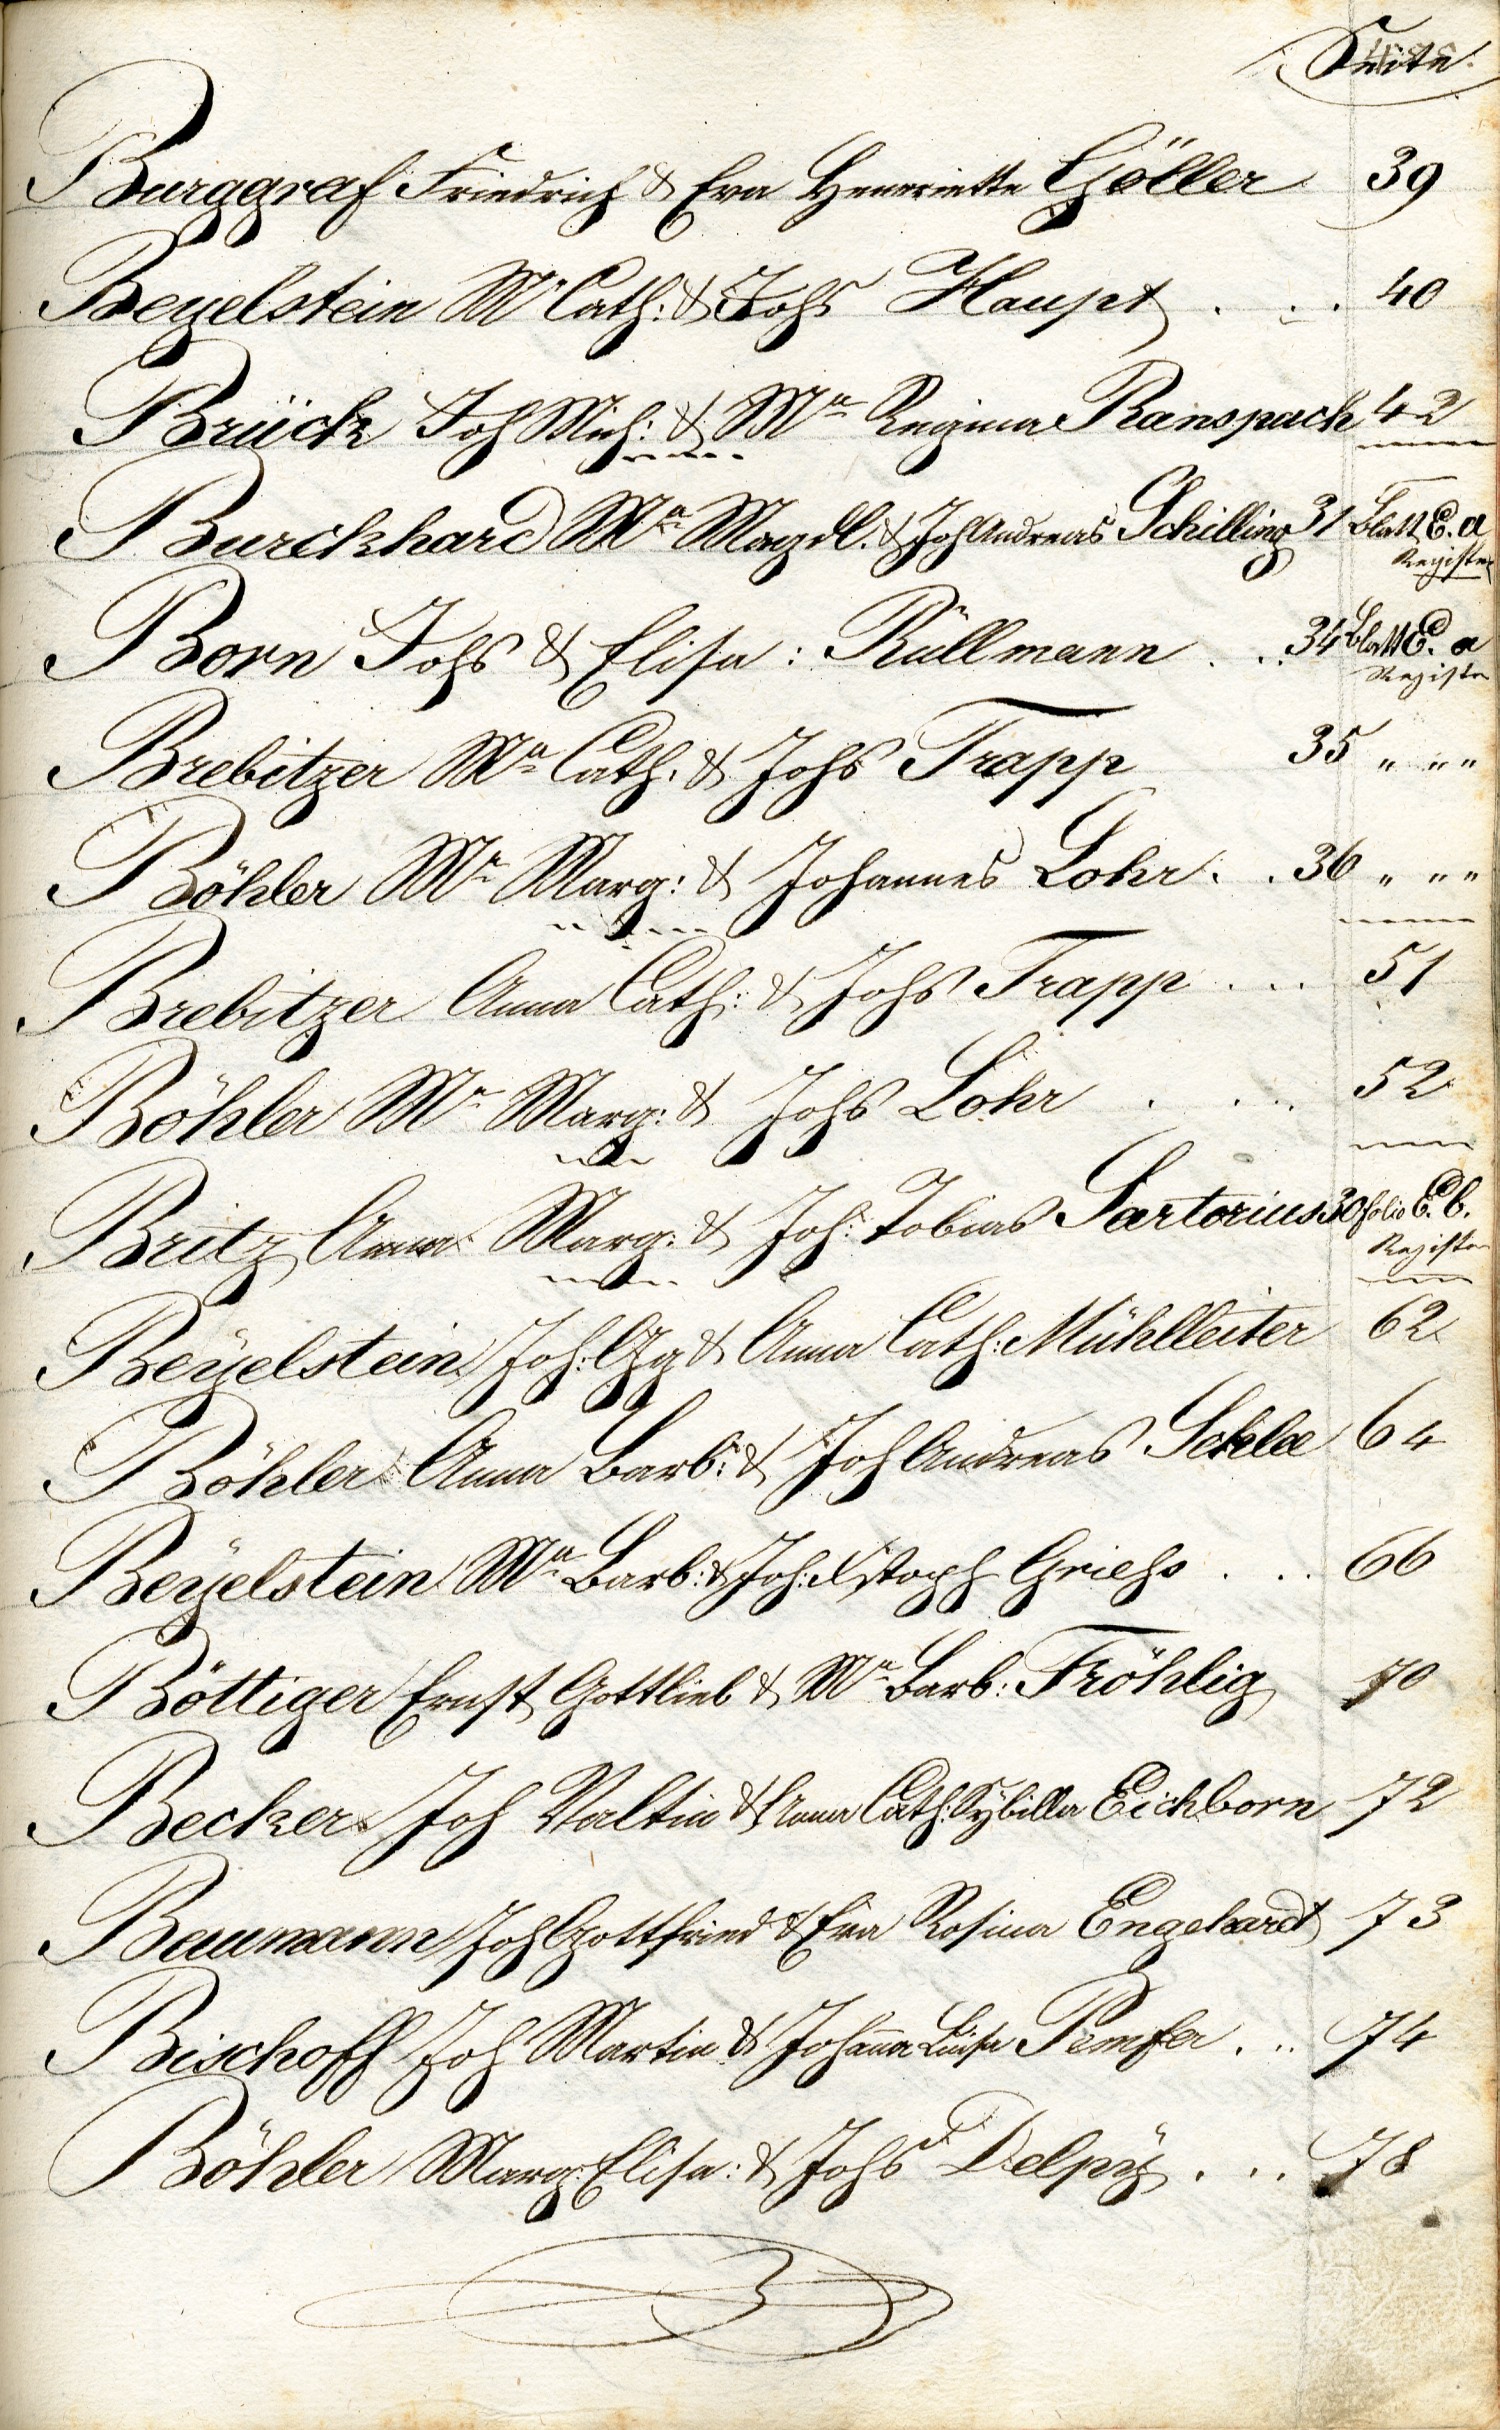 Seite.
Burggraf Friedrich & Eva Henriette Göller 39
Beyelstein Mª Cath: & Johs Haupt . . . 40
Brück Joh Mich: & Mª Regina Ranspach 42
Burckhard Mª Magdl. & Joh Andreas Schilling 31 Blatt E. a
Register
Born Johs & Elisa: Rüllmann . . 34 Blatt E. a
Register
Brebitzer Mª Cath. & Johs Trapp 35 " " "
Böhler Mª Marg: & Johannes Lohr . . 36 " " "
Brebitzer Anna Cath: & Johs Trapp . . . 51
Böhler Mª Marg: & Johs Lohr . . . 52
Britz Anna Marg: & Joh: Tobias Sartorius 30 folio E. b.
Register
Beÿelstein Joh: Gg & Anna Cath: Mühlleiter 62
Böhler Anna Barb: & Joh Andreas Schlee 64
Beÿelstein Mª Barb: & Joh: Christoph Griehs . . . 66
Böttiger Ernst Gottlieb & Mª Barb: Fröhlig 70
Becker Joh Valtin & Anna Cath: Sybilla Eichborn 72
Baumann Joh Gottfried & Eva Rosina Engehardt 73
Bischoff Joh Martin & Johanna Luisa Pemfer . . . 74
Böhler Marg: Elisa: & Johs Delpÿ . . . 78